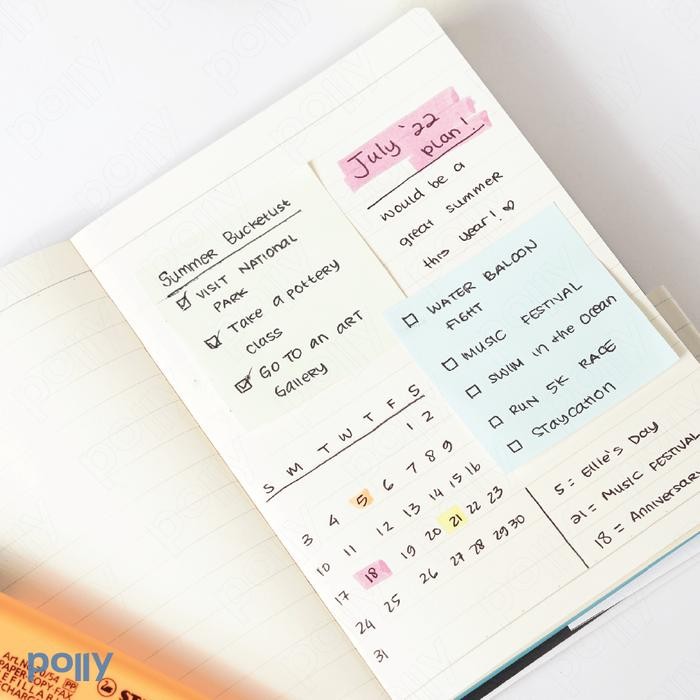 July '22
plan!
would be a
great summer
this year! ♡
Summer Bucketlist
☑ VISIT NATIONAL
PARK
☑ Take a pottery
class
☑ GO TO an ART
Gallery
☐ WATER BALOON
FIGHT
☐ MUSIC FESTIVAL
☐ SWIM in the Ocean
☐ RUN 5K RACE
☐ Staycation
S M T W T F S
1 2
3 4 5 6 7 8 9
10 11 12 13 14 15 16
17 18 19 20 21 22 23
24 25 26 27 28 29 30
31
5 = Ellie's Day
21 = Music FESTIVAL
18 = Anniversary
polly